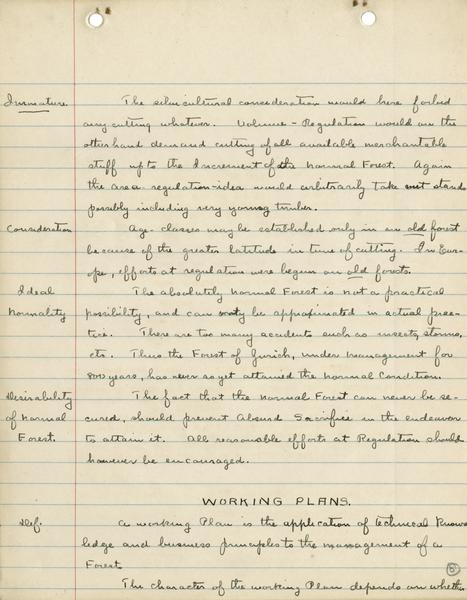 Immature The silvicultural consideration would here forbid
any cutting whatever. Volume-Regulation would on the
other hand demand cutting of all available merchantable
stuff up to the Increment of the Normal Forest. Again
the area-regulation-idea would arbitrarily take out stands
possibly including very young timber.
Consideration Age-classes may be established only in an old forest
because of the greater latitude in time of cutting. In Eur-
ope, efforts at regulation were begun on old forests.
Ideal The absolutely Normal Forest is not a practical
Normality possibility, and can only be approximated in actual prac-
tice. There are too many accidents such as insects, storms,
etc. Thus the Forest of Zurich, under management for
800 years, has never as yet attained the Normal Condition.
Desirability The fact that the Normal Forest can never be se-
of Normal cured, should prevent Absurd Sacrifice in the endeavor
Forest. to attain it. All reasonable efforts at Regulation should
however be encouraged.
WORKING PLANS.
Def. A Working Plan is the application of technical know-
ledge and business principles to the management of a
Forest
The character of the Working Plan depends on whether